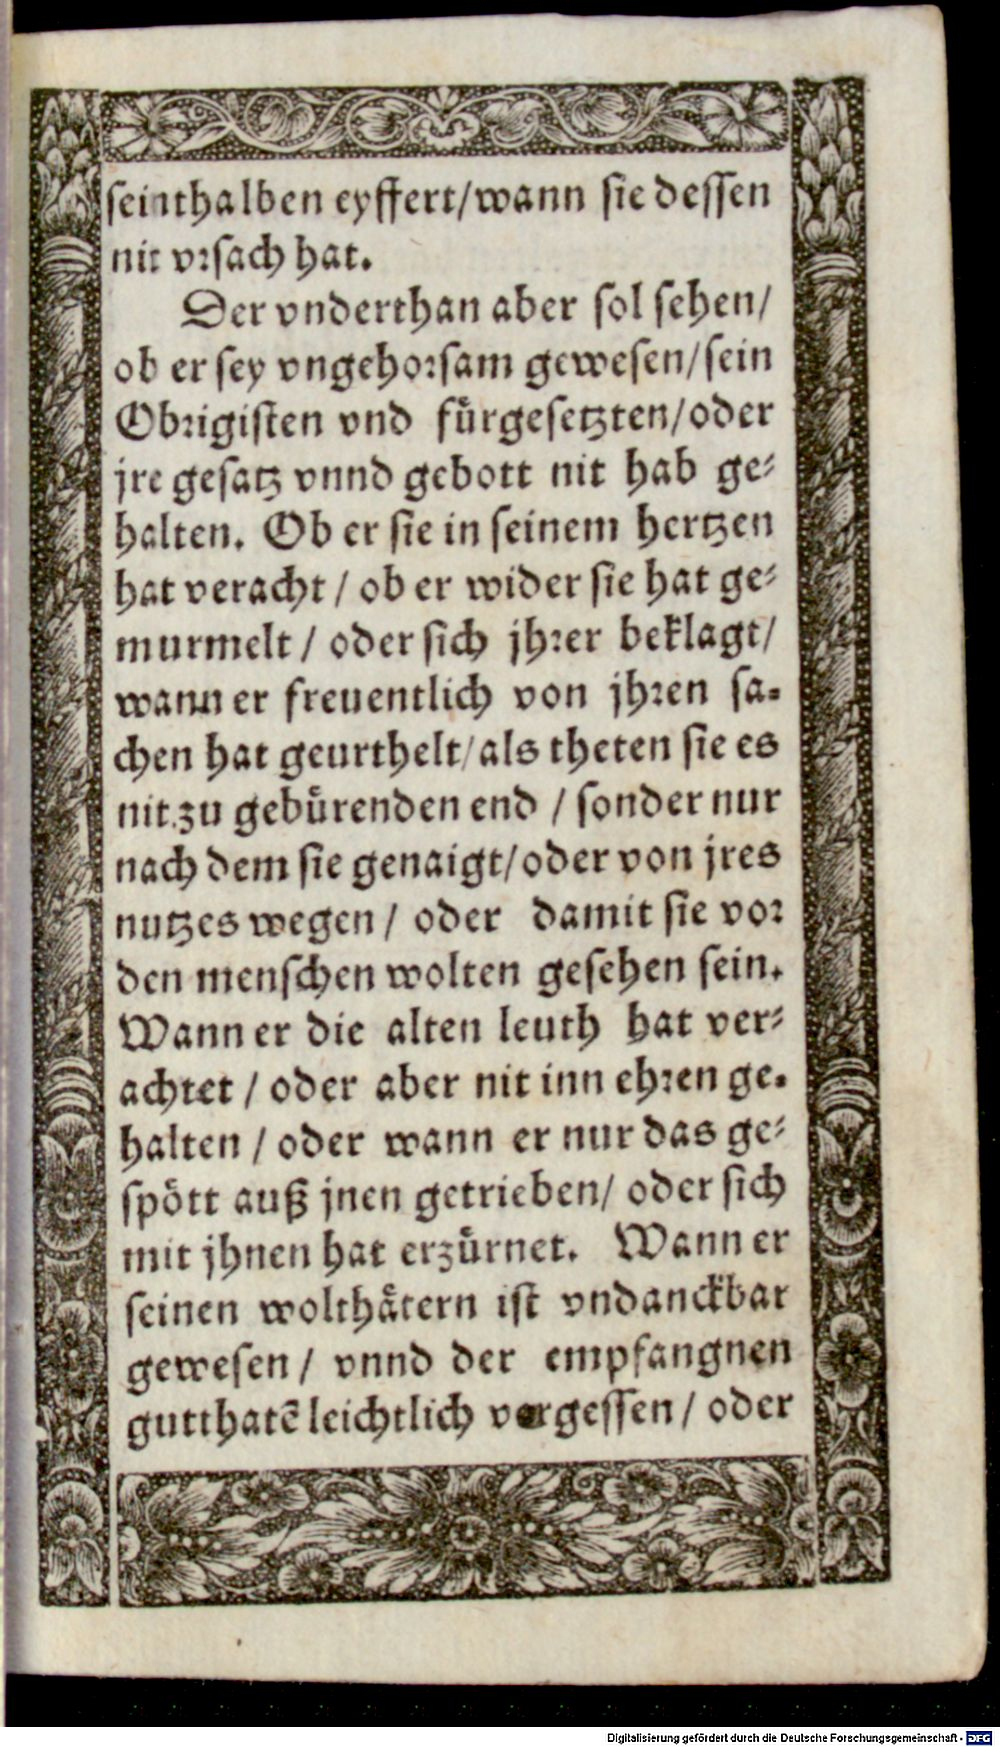 seinthalben eyffert/wann sie dessen
nit vrsach hat.
Der vnderthan aber sol sehen/
ob er sey vngehorsam gewesen/sein
Obrigisten vnd fürgesetzten/oder
jre gesatz vnnd gebott nit hab ge-
halten. Ob er sie in seinem hertzen
hat veracht / ob er wider sie hat ge-
murmelt / oder sich jhrer beklagt/
wann er freuentlich von jhren sa-
chen hat geurthelt/als theten sie es
nit zu gebürenden end / sonder nur
nach dem sie genaigt/oder von jres
nutzes wegen / oder damit sie vor
den menschen wolten gesehen sein.
Wann er die alten leuth hat ver-
achtet / oder aber nit inn ehren ge-
halten / oder wann er nur das ge-
spött auß jnen getrieben/ oder sich
mit jhnen hat erzürnet. Wann er
seinen wolthätern ist vndanckbar
gewesen / vnnd der empfangnen
gutthatē leichtlich vergessen / oder
Digitalisierung gefördert durch die Deutsche Forschungsgemeinschaft - DFG